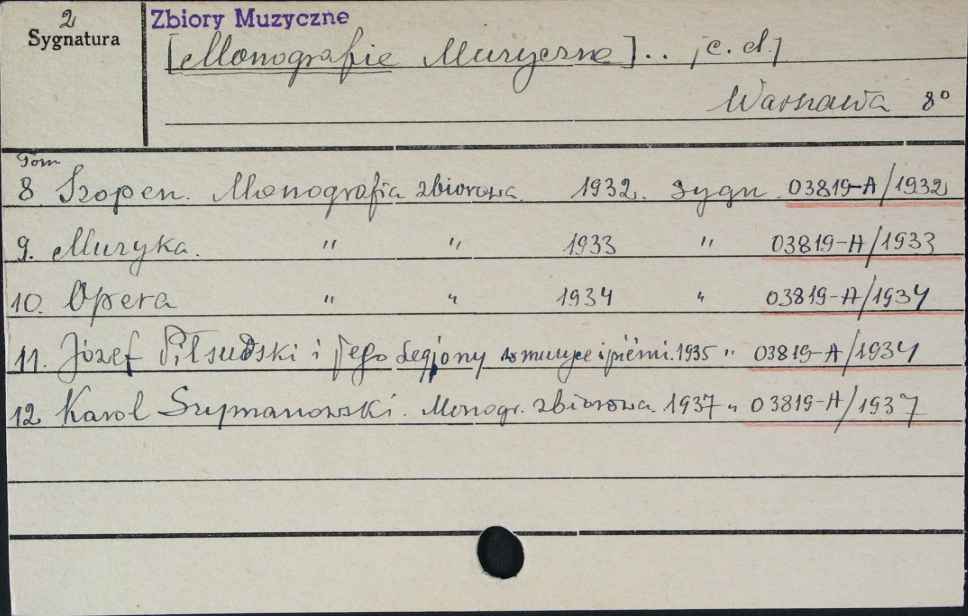 2
Sygnatura
Zbiory Muzyczne
[Monografie Muzyczne].. [c. d.]
Warszawa 8°
Tom
8 Szopen. Monografia zbiorowa. 1932. sygn. 03819-A/1932
9. Muzyka. " " 1933 " 03819-A/1933
10. Opera " " 1934 " 03819-A/1934
11. Józef Piłsudski i Jego Legjony w muzyce i pieśni. 1935 " 03819-A/1934
12 Karol Szymanowski. Monogr. zbiorowa. 1937 " 03819-A/1937